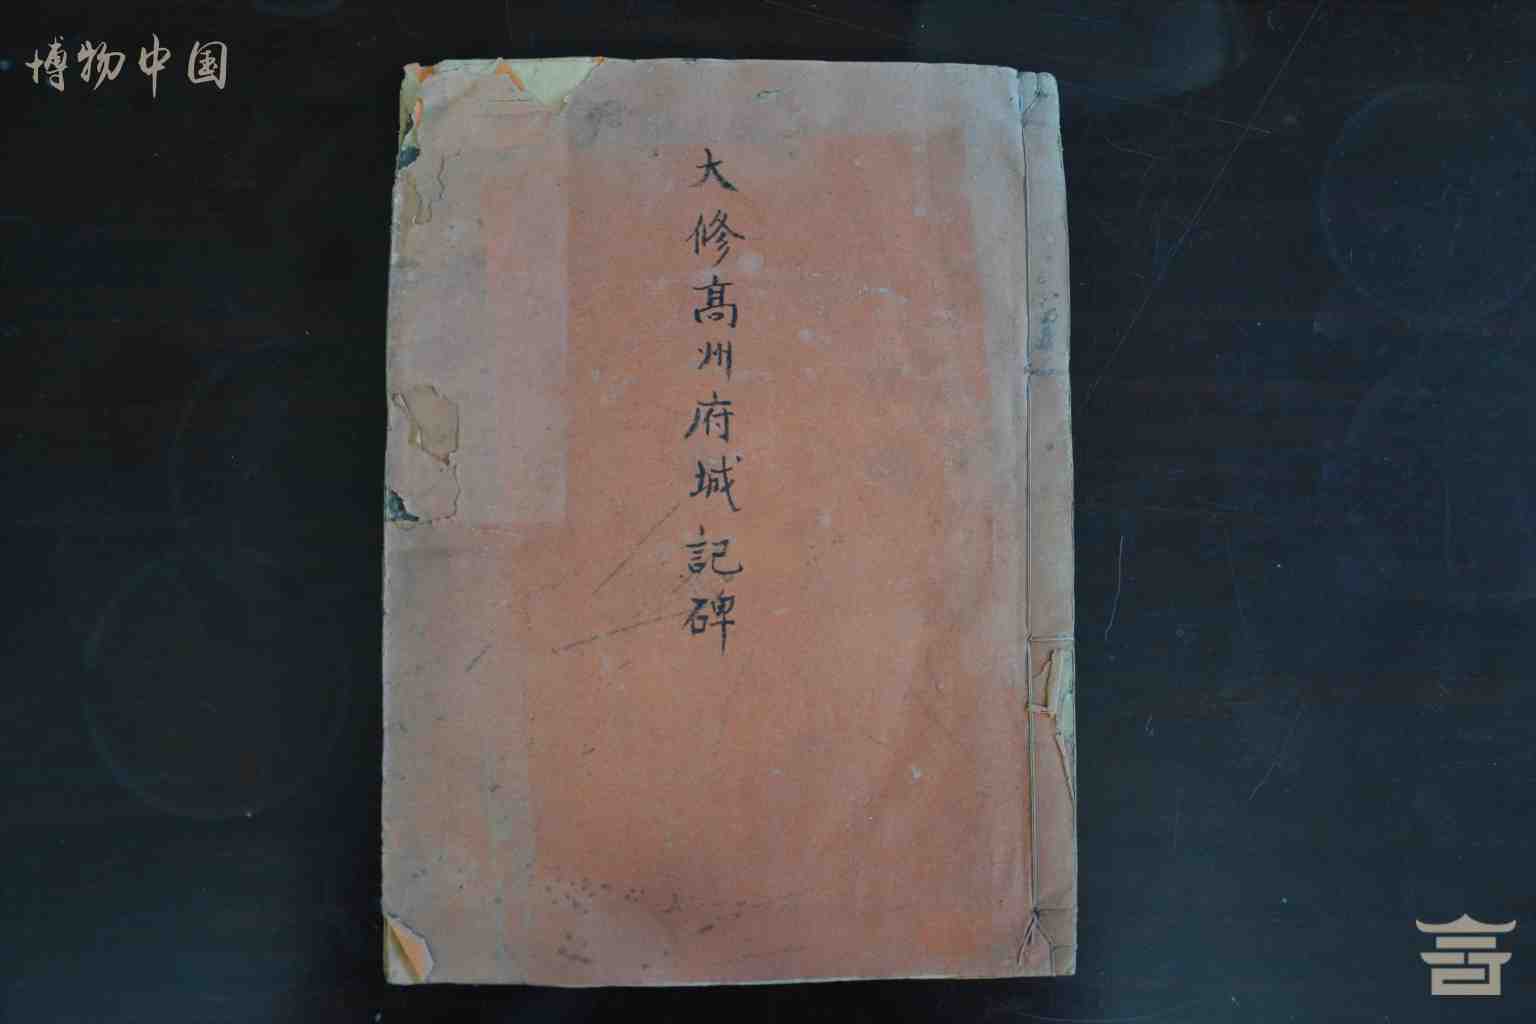 博物中国
大修高州府城記碑